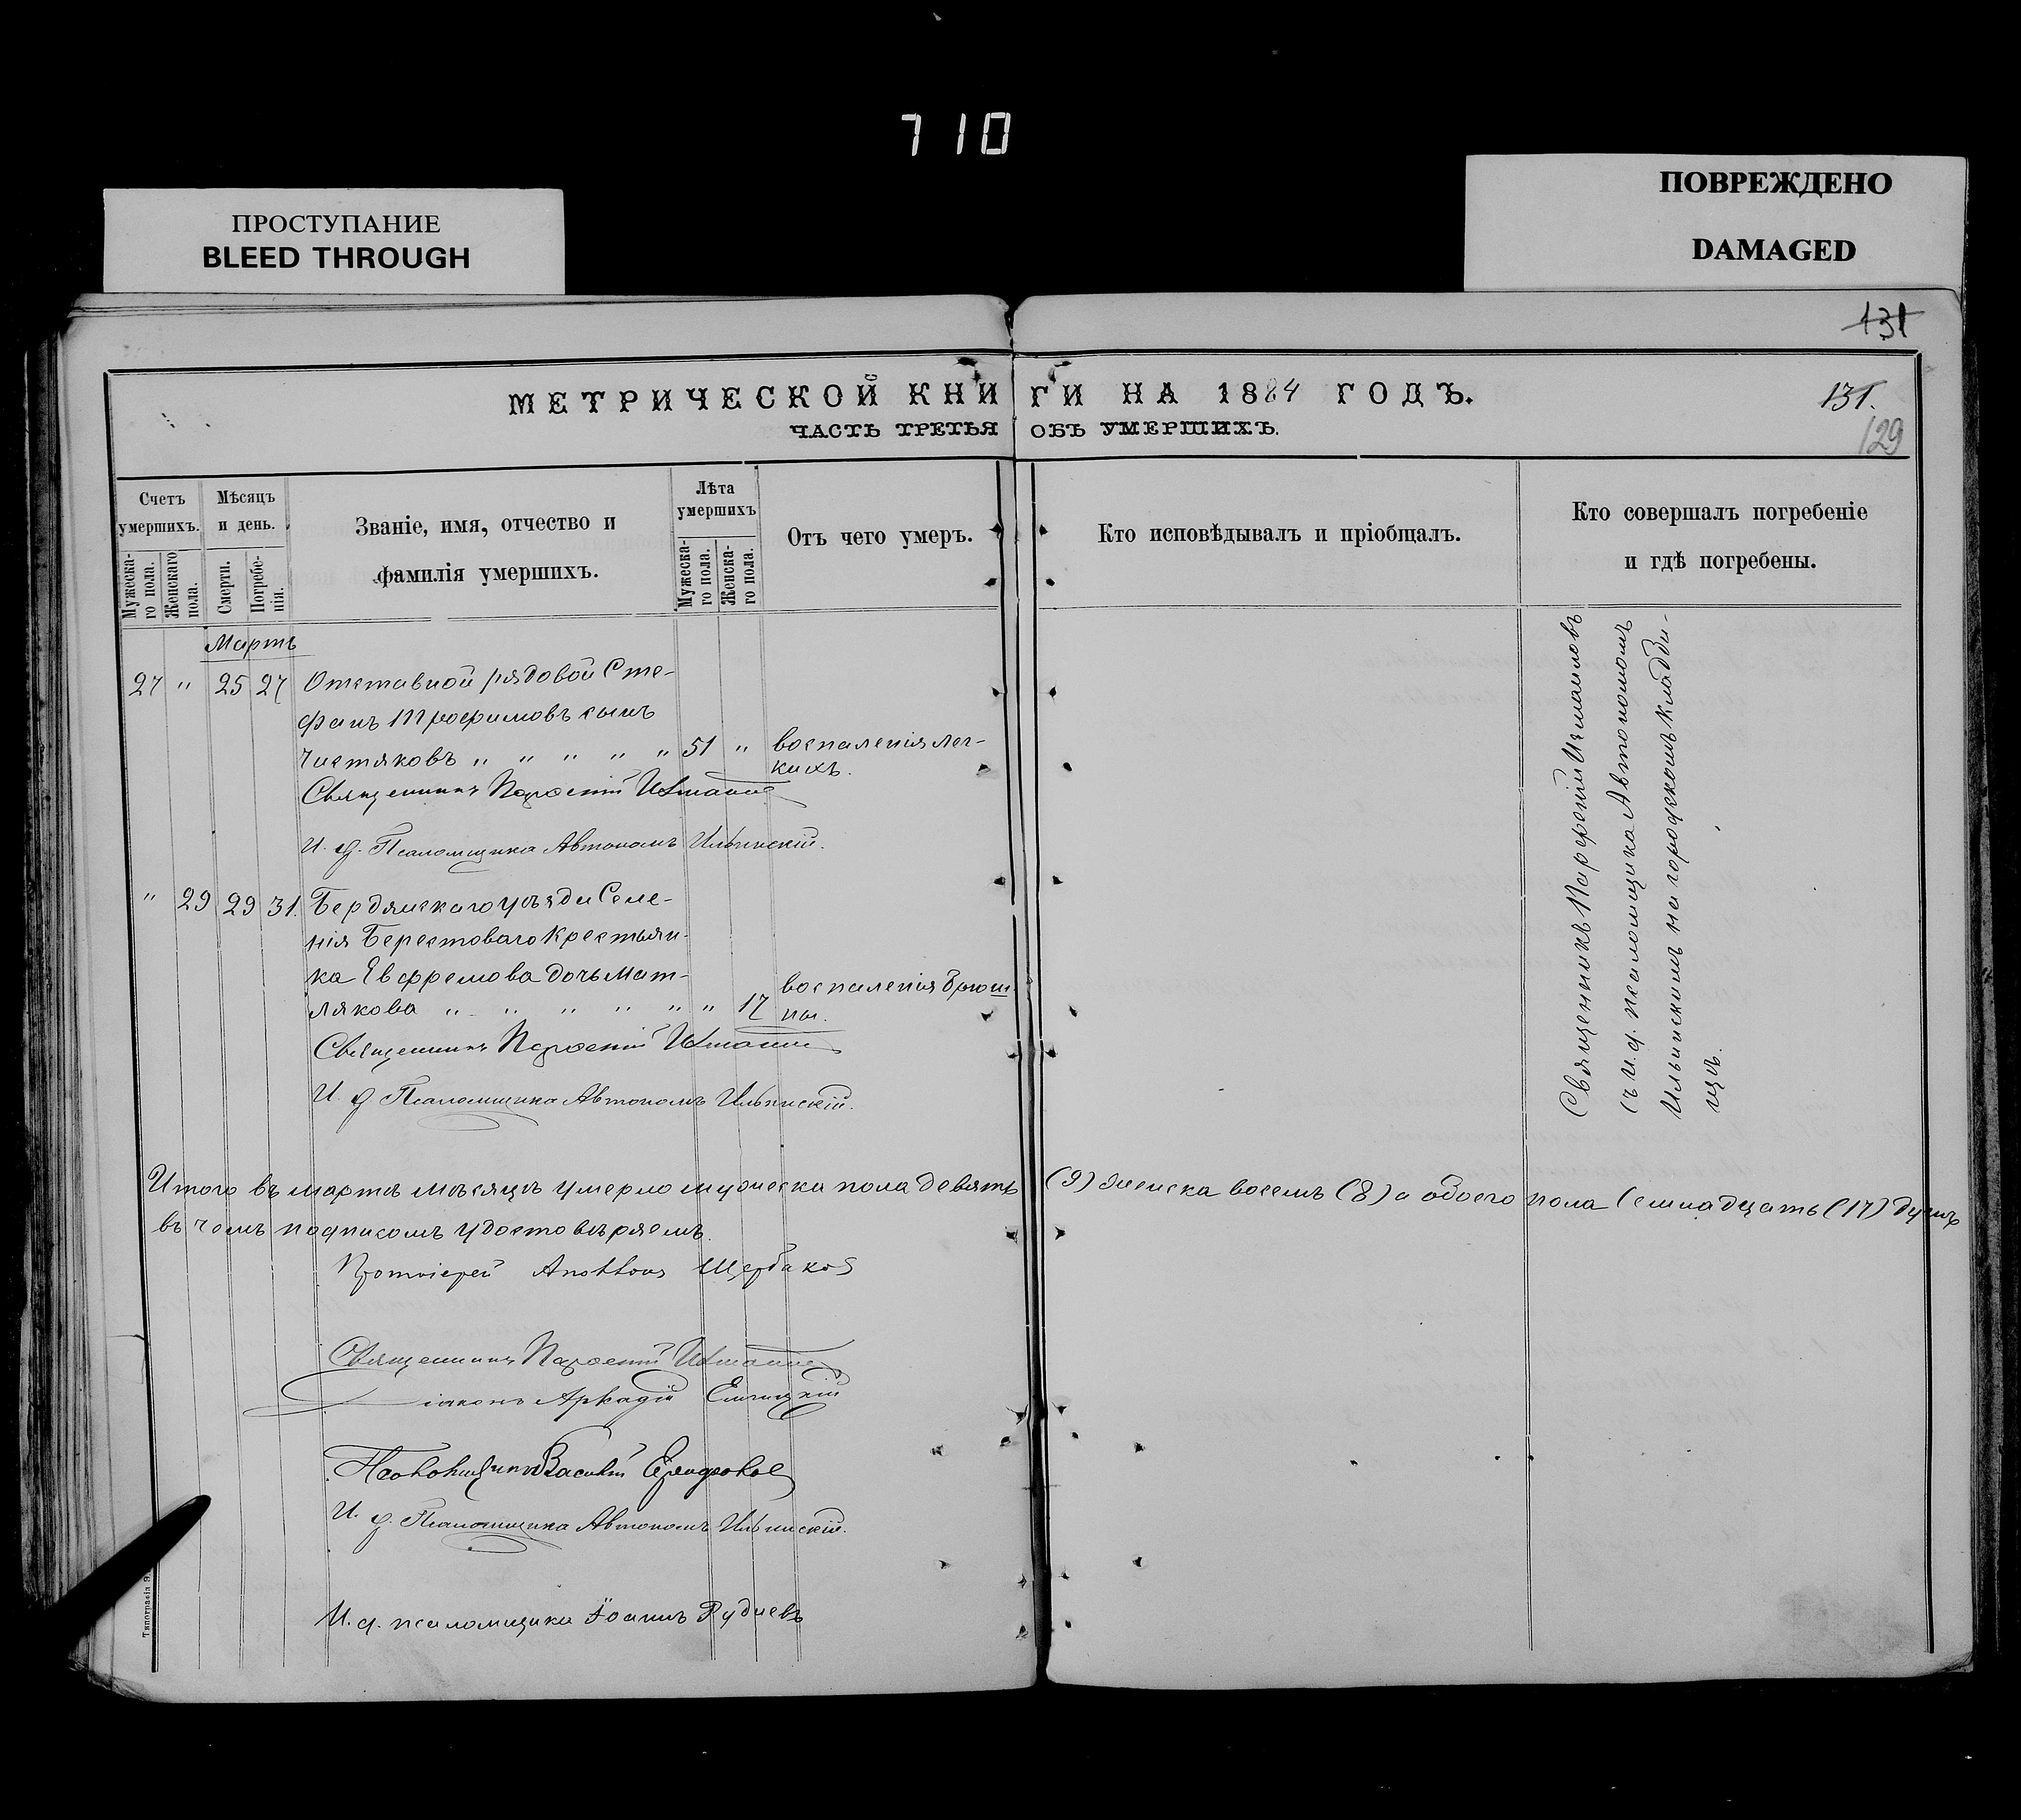 710
ПРОСТУПАНИЕ
BLEED THROUGH
ПОВРЕЖДЕНО
DAMAGED
131
МЕТРИЧЕСКОЙ КНИГИ НА 1884 ГОДЪ.
131.
ЧАСТЬ ТРЕТЬЯ ОБЪ УМЕРШИХЪ.
129
Счетъ умершихъ.
Мужеска-го пола.
Женскаго пола.
Мѣсяцъ и день.
Смерти.
Погребе-нія.
Званіе, имя, отчество и
фамилія умершихъ.
Лѣта умершихъ
Мужеска-го пола.
Женска-го пола.
Отъ чего умеръ.
Кто исповѣдывалъ и пріобщалъ.
Кто совершалъ погребеніе
и гдѣ погребены.
Мартъ
27 " 25 27 Отставной рядовой Сте-
фанъ Трофимовъ сынъ
Чистяковъ " " " " " 51 " воспаленія лег-
кихъ.
Священникъ Парѳеній
И. д. Псаломщика Автономъ Ильинскій.
" 29 29 31. Бердянскаго уѣзда Селе-
нія Берестоваго крестьян-
ка Евфремова дочь Мат-
лякова " " " " " " 17 воспаленія брюши-
ны.
Священникъ Парѳеній
И. д. Псаломщика Автономъ Ильинскій.
Священникъ Парфеній
съ и. д. псаломщика Автономомъ
Ильинскимъ на городскомъ кладби-
щѣ.
Итого въ мартѣ мѣсяцѣ умерло мужеска пола девять (9) женска восемь (8) а обоего пола семнадцать (17) душъ
въ чемъ подписомъ удостовѣряемъ.
Протоіерей Щербаковъ
Священникъ Парѳеній
Діаконъ Аркадій
Псаломщикъ Василій
И. д. Псаломщика Автономъ Ильинскій.
И. д. псаломщика Іоаннъ Рудневъ
Типографія